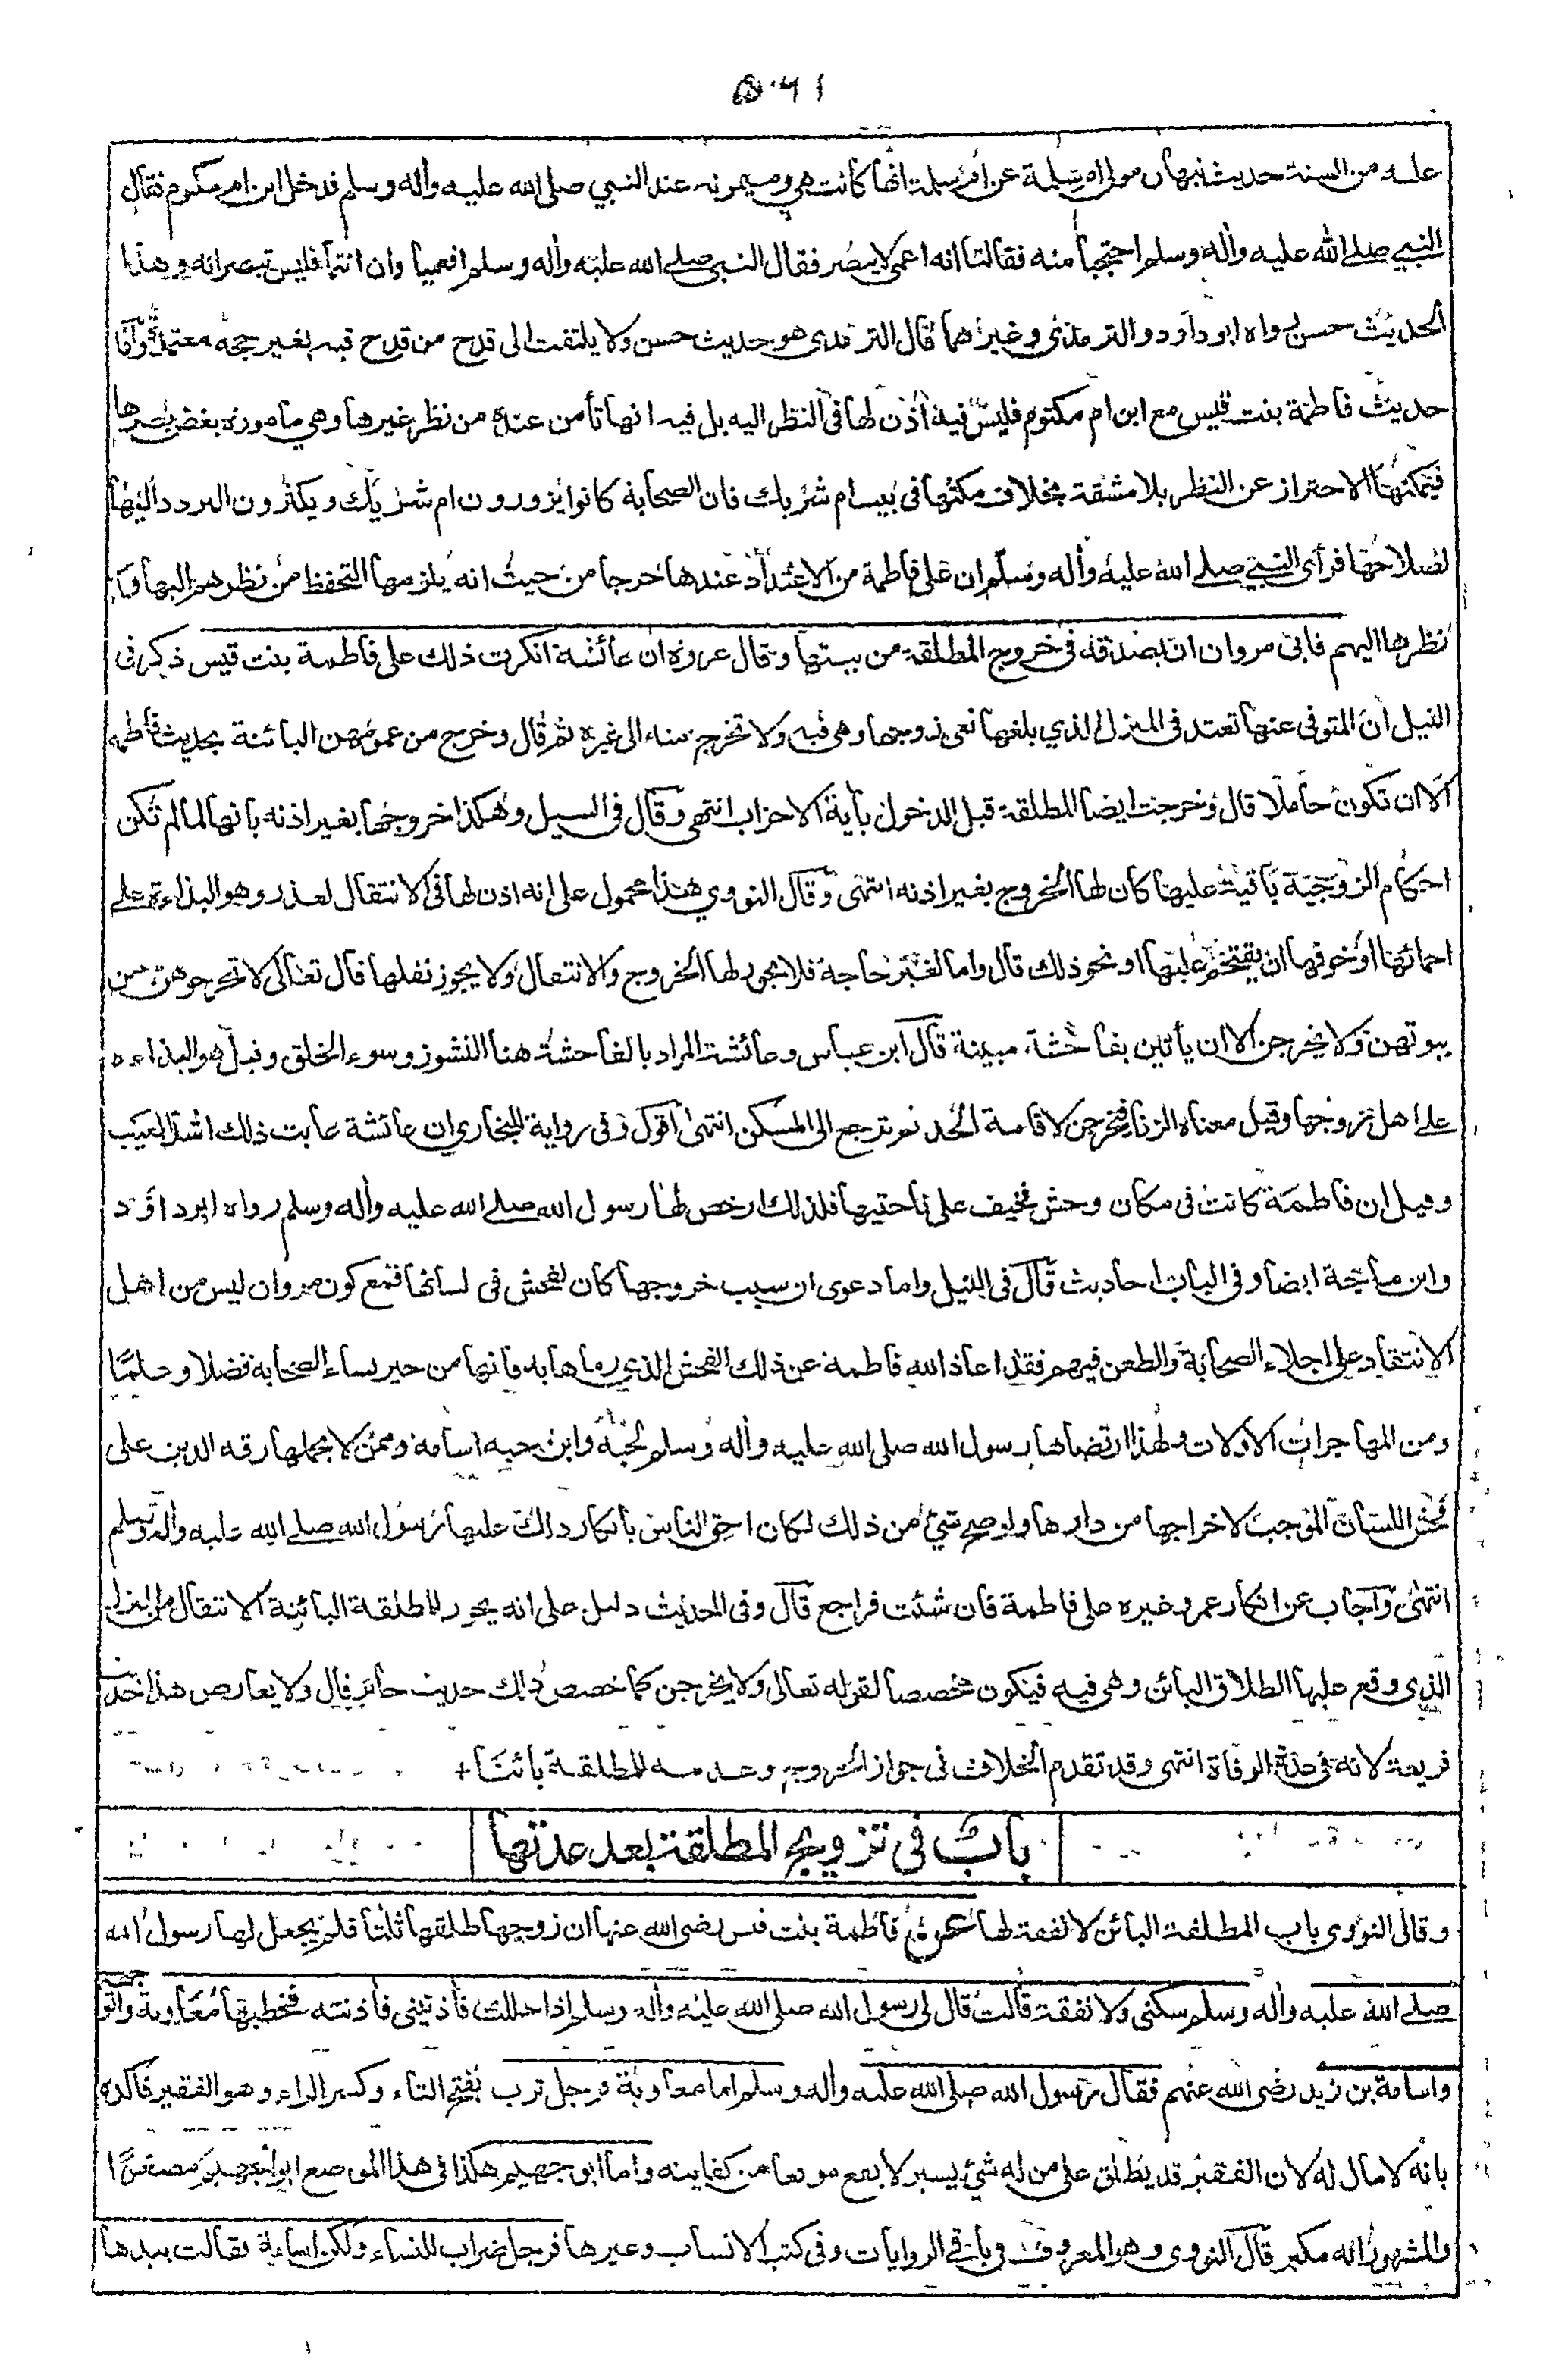 عليه من السنة حديث نبهان مولى ام سلمة عن ام سلمة انها كانت هي وميمونه عند النبي صلى الله عليه وأله وسلم فدخل ابن ام مكتوم فقال
النبي صلے الله عليه وأله وسلم احتجبا منه فقالتا انه اعمى لا يبصر فقال النبي صلے الله عليه وأله وسلم افعميا وان انتما فليس تبصرانه وهذا
الحديث حسن رواه ابو داود والترمذي وغيرهما قال الترمذى هو حديث حسن ولا يلتفت الى قدح من قدح فيه بغير حجة معتمدة واما
حديث فاطمة بنت قيس مع ابن ام مكتوم فليس فيه اذن لها فى النظر اليه بل فيه انها تأمن عنده من نظر غيرها وهي مامورة بغض بصرها
فيمكنها الاحتراز عن النظر بلا مشقة بخلاف مكثها فى بيت ام شريك فان الصحابة كانوا يزورون ام شريك ويكثرون التردد اليها
لصلاحها فرأى النبي صلے الله عليه وأله وسلم ان على فاطمة من الاعتداد عندها حرجا من حيث انه يلزمها التحفظ من نظرهم اليها و
نظرها اليهم فابى مروان ان يصدقه فى خروج المطلقة من بيتها وقال عروة ان عائشة انكرت ذلك على فاطمة بنت قيس ذكر فى
النيل ان المتوفى عنها تعتد فى المنزل الذي بلغها نعى زوجها وهى فيه ولا تخرج منه الى غيره ثم قال وخرج من عمومهن البائنة بحديث فاطمة
الا ان تكون حاملا قال وخرجت ايضا المطلقة قبل الدخول بأية الاحزاب انتهى وقال فى السيل وهكذا خروجها بغير اذنه بانها لما لم تكن
احكام الزوجية باقية عليها كان لها الخروج بغير اذنه انتهى وقال النووي هذا محمول على انه اذن لها فى الانتقال لعذر وهو البذاءة على
احمائها او خوفها ان يقتحم عليها او نحو ذلك قال واما لغير حاجة فلا يجوز لها الخروج والانتقال ولا يجوز نقلها قال تعالى لا تخرجوهن من
بيوتهن ولا يخرجن الا ان يأتين بفاحشة مبينة قال ابن عباس وعائشة المراد بالفاحشة هنا النشوز وسوء الخلق وقيل هو البذاءة
على اهل زوجها وقيل معناه الزنا فيخرجن لاقامة الحد ثم ترجع الى المسكن انتهى اقول وفى رواية للبخاري ان عائشة عابت ذلك اشد العيب
وقيل ان فاطمة كانت فى مكان وحش فخيف على ناحيتها فلذلك ارخص لها رسول الله صلے الله عليه وأله وسلم رواه ابو داؤد
وابن ماجة ايضا وفى الباب احاديث قال فى النيل واما دعوى ان سبب خروجها كان لفحش فى لسانها فمع كون مروان ليس من اهل
الانتقاد على اجلاء الصحابة والطعن فيهم فقد اعاذ الله فاطمة عن ذلك الفحش الذي رماها به فانها من خير نساء الصحابة فضلا وعلمًا
ومن المهاجرات الاولات ولهذا ارتضاها رسول الله صلى الله عليه وأله وسلم لحبه وابن حبه اسامة وممن لا يحملها رقة الدين على
فحش اللسان الموجب لاخراجها من دارها ولو صح شئ من ذلك لكان احق الناس بانكار ذلك عليها رسول الله صلے الله عليه واله وسلم
انتهى وآجاب عن انكار عمر وغيره على فاطمة فان شئت فراجع قال وفى الحديث دليل على انه يجوز للمطلقة البائنة الانتقال من المنزل
الذي وقع عليها الطلاق البائن وهى فيه فيكون مخصصا لقوله تعالى ولا يخرجن كما خصص ذلك حديث جابر قال ولا يعارض هذا حديث
فريعة لانه فى عدة الوفاة انتهى وقد تقدم الخلاف فى جواز الخروج وعدمه للمطلقة بائنا +
باب فى تزويج المطلقة بعد عدتها
وقال النووى باب المطلقة البائن لا نفقة لها عن فاطمة بنت قيس رضى الله عنها ان زوجها طلقها ثلثا فلم يجعل لها رسول الله
صلے الله عليه وأله وسلم سكنى ولا نفقة قالت قال لى رسول الله صلى الله عليه وأله وسلم اذا حللت فأذنينى فأذنته فخطبها معاوية وابو جهم
واسامة بن زيد رضى الله عنهم فقال رسول الله صلى الله عليه وأله وسلم اما معاوية فرجل ترب بفتح التاء وكسر الراء وهو الفقير فاكده
بانه لا مال له لان الفقير قد يطلق على من له شئ يسير لا يقع موقعا من كفايته واما ابو جهيم هكذا فى هذا الموضع ابو الجهيم مصغرا
والمشهور انه مكبر قال النووى وهو المعروف فى باقى الروايات وفى كتب الانساب وغيرها فرجل ضراب للنساء ولكن اسامة فقالت بيدها